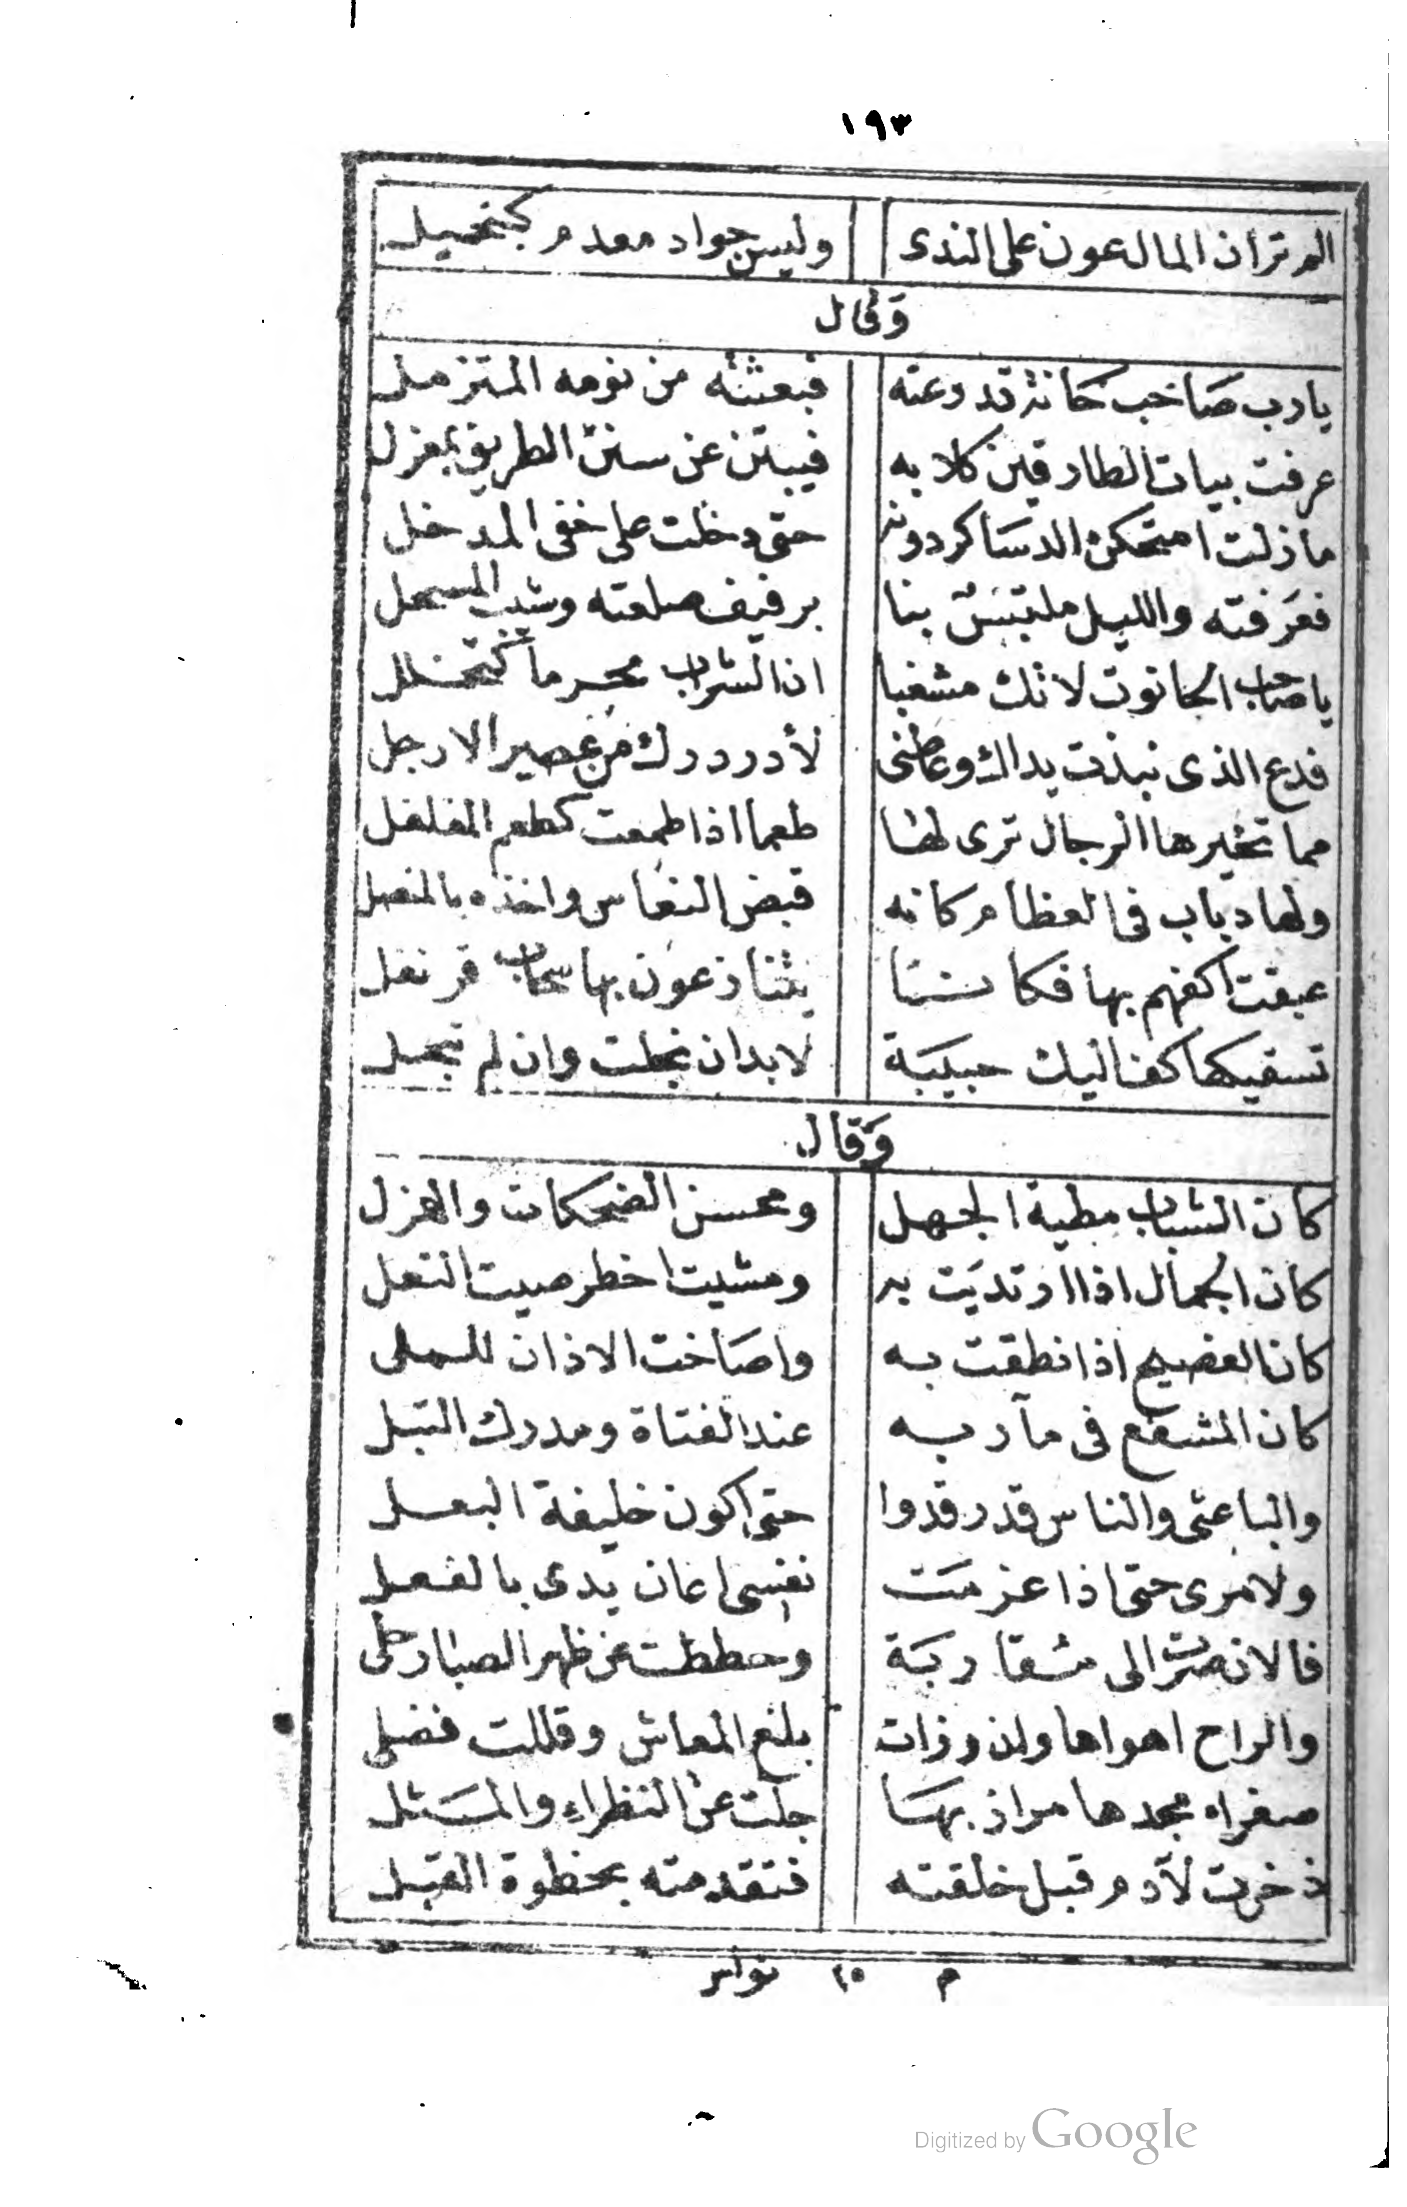 ١٩٣
الم تر ان المال عون على الندى وليس جواد معدم كبخيل
وَقال
يارب صَاحب حَانة قد رعته فبعثته من نومه المتزمل
عرفت بيات الطارقين كلابه فيبتن عن سنن الطريق بمعزل
مازلت امتحكن الدسَاكر دونه حتى دخلت على خفى المدخل
فعَرفته والليل ملتبسٌ بنا برفيف صلعته وشيب المسحل
ياصاحب الحانوت لاتك مشغبا ان الشراب محرما كمحلل
فدع الذى نبذت يداك وعاطنى لأدردرك من عصير الارجل
مما تخيرها الرجال ترى لها طعما اذا طمعت كطعم الفلفل
ولها دباب فى العظام كانه قبض النعاس واخذه بالمنصل
عبقت اكفهم بها فكانما يتنازعون بها سحاب قرنفل
تسقيكها كفا اليك حبيبَة لابد ان بخلت وان لم تبخل
وَقال
كان الشباب مطية الجهل ومحسن الضحكات والهزل
كان الجمال اذا ارتديَت به ومشيت اخطر صيت النعل
كان الفصيح اذا نطقت به واصَاخت الاذان للملى
كان المشفع فى مآربه عند الفتاة ومدرك التبل
والباعثى والناس قد رقدوا حتى اكون خليفة البعل
ولامرى حتى اذا عزمَت نفسى اعان يدى بالفعل
فالان صرت الى مقاربَة وحططت عن ظهر الصبا رحلى
والراح اهواها وان رزات بلغ المعاش وقللت فضلى
صفراء مجدها مرازبهَا جلت عن النظراء والمَثل
ذخرت لآدم قبل خلقته فتقدمته بخطوة القبل
م ٢٥ نواس
Digitized by Google